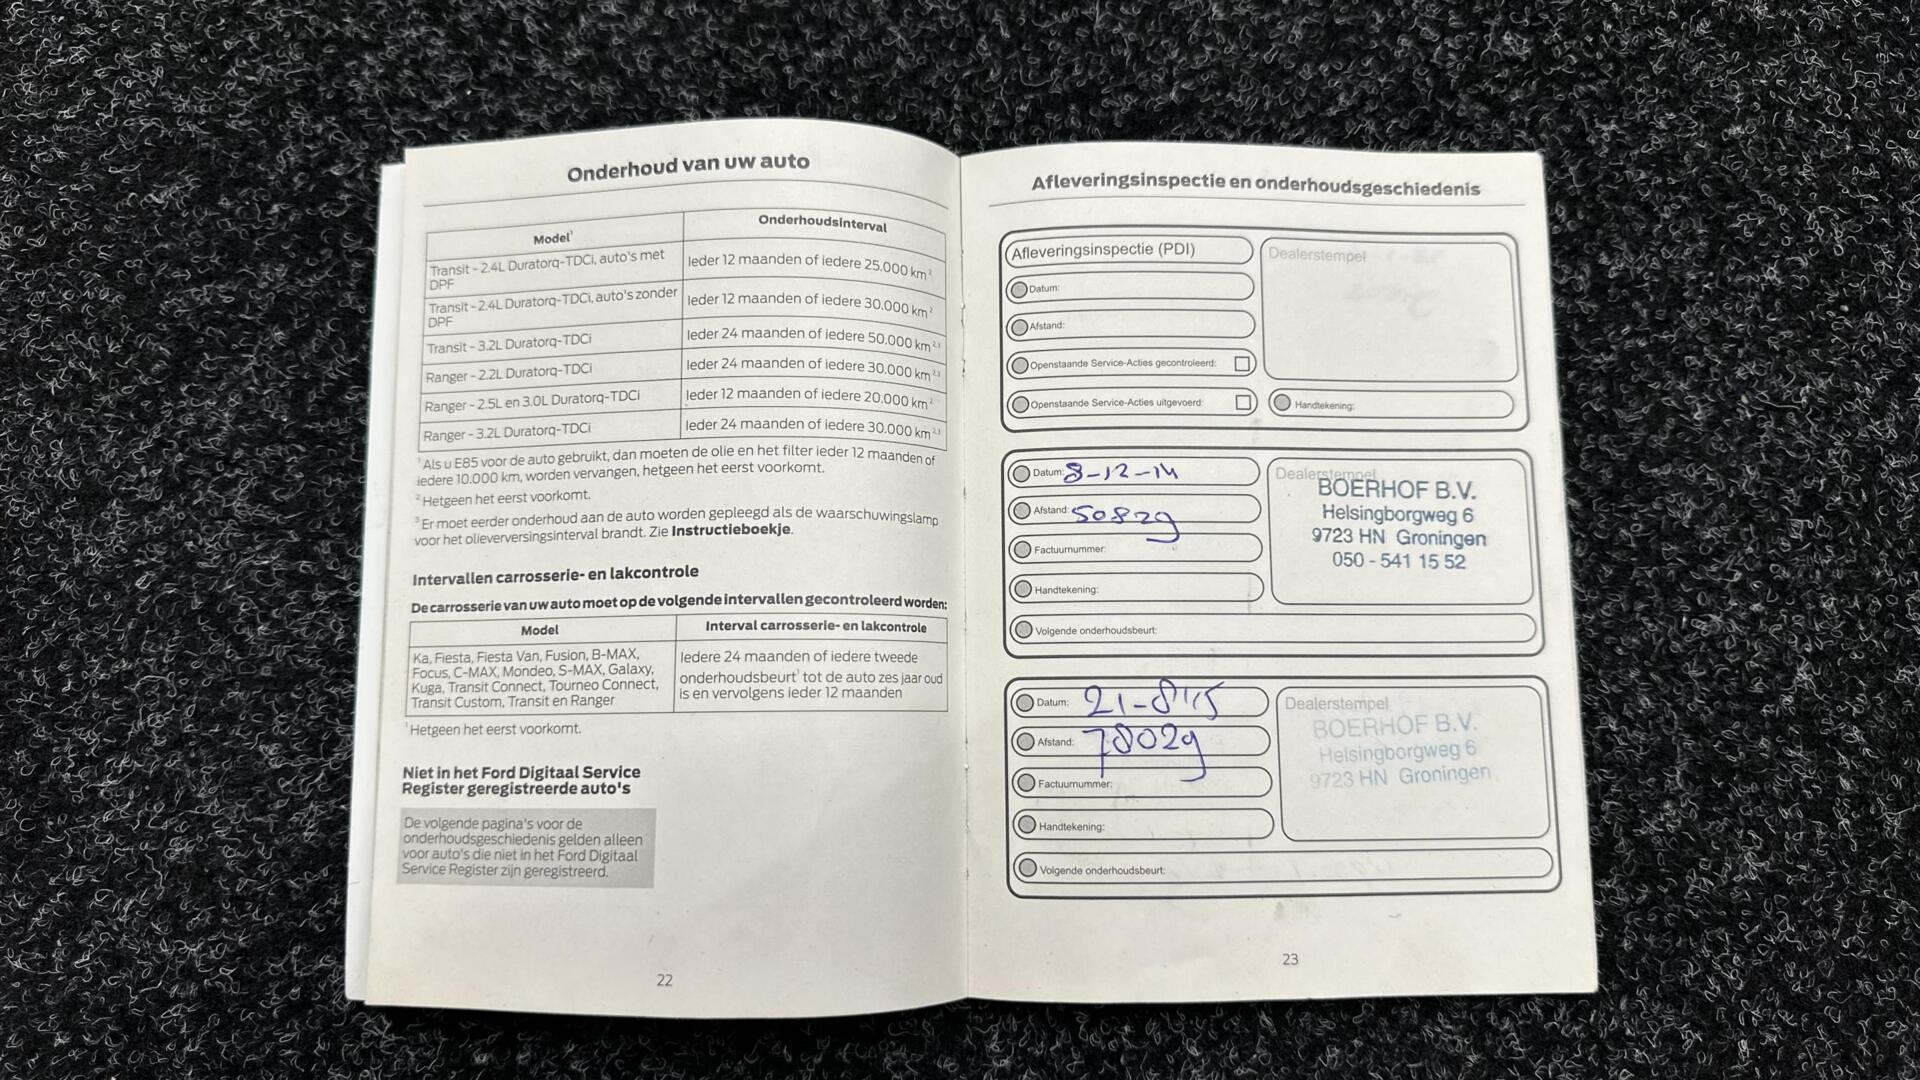 Onderhoud van uw auto
Model¹ Onderhoudsinterval
Transit - 2.4L Duratorq-TDCi, auto's met DPF Ieder 12 maanden of iedere 25.000 km²
Transit - 2.4L Duratorq-TDCi, auto's zonder DPF Ieder 12 maanden of iedere 30.000 km²
Transit - 3.2L Duratorq-TDCi Ieder 24 maanden of iedere 50.000 km²,³
Ranger - 2.2L Duratorq-TDCi Ieder 24 maanden of iedere 30.000 km²,³
Ranger - 2.5L en 3.0L Duratorq-TDCi Ieder 12 maanden of iedere 20.000 km²
Ranger - 3.2L Duratorq-TDCi Ieder 24 maanden of iedere 30.000 km²,³
¹Als u E85 voor de auto gebruikt, dan moeten de olie en het filter ieder 12 maanden of
iedere 10.000 km, worden vervangen, hetgeen het eerst voorkomt.
²Hetgeen het eerst voorkomt.
³Er moet eerder onderhoud aan de auto worden gepleegd als de waarschuwingslamp
voor het olieverversingsinterval brandt. Zie Instructieboekje.
Intervallen carrosserie- en lakcontrole
De carrosserie van uw auto moet op de volgende intervallen gecontroleerd worden:
Model Interval carrosserie- en lakcontrole
Ka, Fiesta, Fiesta Van, Fusion, B-MAX,
Focus, C-MAX, Mondeo, S-MAX, Galaxy,
Kuga, Transit Connect, Tourneo Connect,
Transit Custom, Transit en Ranger
Iedere 24 maanden of iedere tweede
onderhoudsbeurt¹ tot de auto zes jaar oud
is en vervolgens ieder 12 maanden
¹Hetgeen het eerst voorkomt.
Niet in het Ford Digitaal Service
Register geregistreerde auto's
De volgende pagina's voor de
onderhoudsgeschiedenis gelden alleen
voor auto's die niet in het Ford Digitaal
Service Register zijn geregistreerd.
22
Afleveringsinspectie en onderhoudsgeschiedenis
Afleveringsinspectie (PDI)
Datum:
Afstand:
Openstaande Service-Acties gecontroleerd:
Openstaande Service-Acties uitgevoerd:
Dealerstempel
Handtekening:
Datum: 8-12-14
Afstand: 50829
Factuurnummer:
Handtekening:
Volgende onderhoudsbeurt:
Dealerstempel
BOERHOF B.V.
Helsingborgweg 6
9723 HN Groningen
050 - 541 15 52
Datum: 21-8-15
Afstand: 78029
Factuurnummer:
Handtekening:
Volgende onderhoudsbeurt:
Dealerstempel
BOERHOF B.V.
Helsingborgweg 6
9723 HN Groningen
23